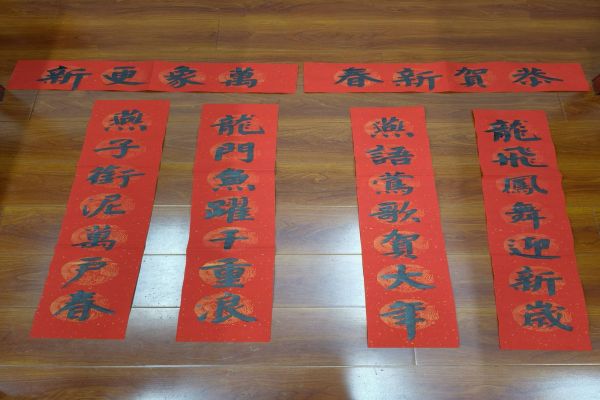 恭賀新春
萬象更新
龍飛鳳舞迎新歲
燕語鶯歌賀大年
龍門魚躍千重浪
燕子銜泥萬戶春